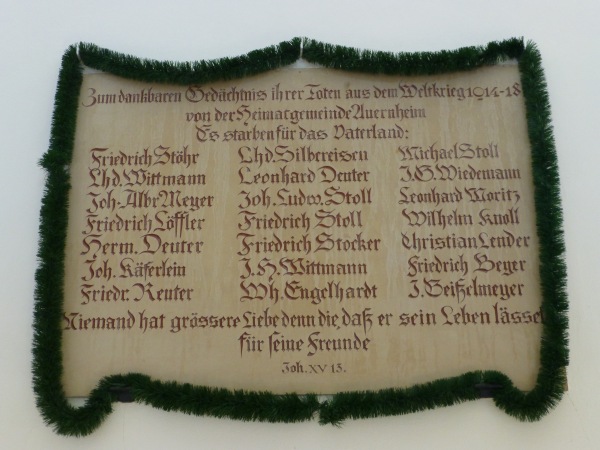 Zum dankbaren Gedächtnis ihrer Toten aus dem Weltkrieg 1914-18
von der Heimatgemeinde Auernheim
Es starben für das Vaterland:
Friedrich Stöhr Lhd. Silbereisen Michael Stoll
Lhd. Wittmann Leonhard Deuter J.G. Wiedemann
Joh. Albr Meyer Joh. Ludw. Stoll Leonhard Moritz
Friedrich Löffler Friedrich Stoll Wilhelm Knoll
Herm. Deuter Friedrich Stocker Christian Lender
Joh. Käferlein J.H. Wittmann Friedrich Beyer
Friedr. Reuter Wh. Engelhardt J. Geißelmeyer
Niemand hat grössere Liebe denn die, daß er sein Leben lässet
für seine Freunde
Joh. XV 13.